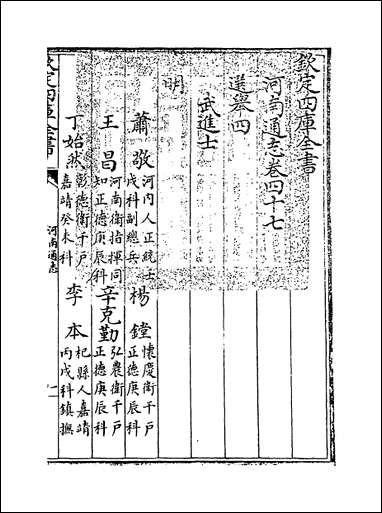 欽定四庫全書
河南通志卷四十七
選舉四
武進士
明
蕭敬河內人正統士戌科副總兵 楊鏜懷慶衛千户正德庚辰科
王昌河南衛指揮同知正德庚辰科 辛克勤弘農衛千户正德庚辰科
丁始然彰德衛千户嘉靖癸未科 李本杞縣人嘉靖丙戌科鎮撫
欽定四庫全書
河南通志
一